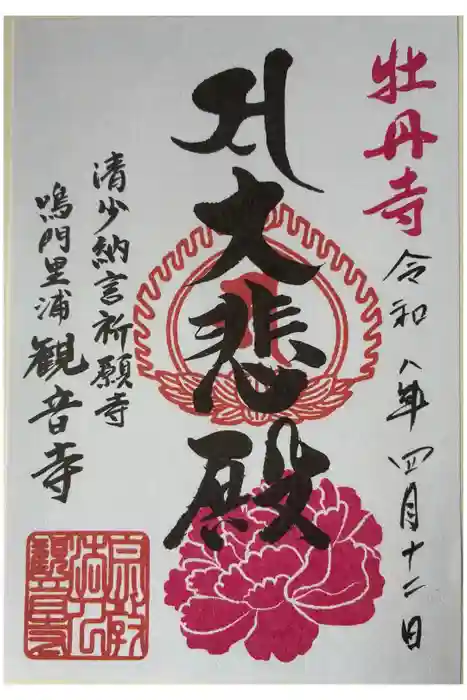 牡丹寺
令和八年四月十二日
大悲殿
清少納言祈願寺
鳴門里浦 観音寺